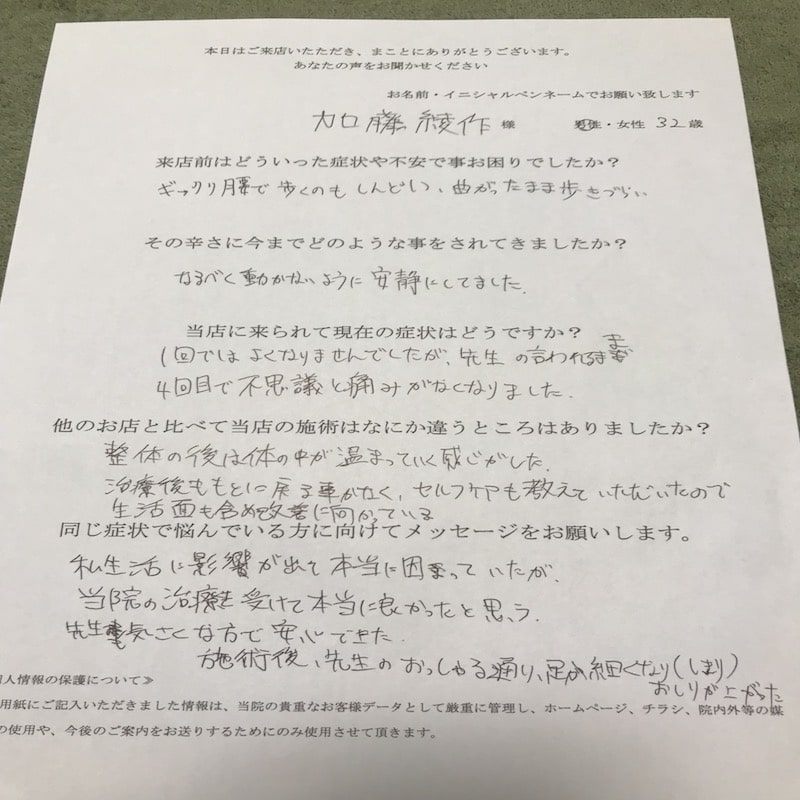 本日はご来店いただき、まことにありがとうございます。
あなたの声をお聞かせください
お名前・イニシャルペンネームでお願い致します
加藤綾作 様 男性・女性 32歳
来店前はどういった症状や不安で事お困りでしたか？
ギックリ腰で歩くのもしんどい、曲がったまま歩きづらい
その辛さに今までどのような事をされてきましたか？
なるべく動かないように安静にしてました。
当店に来られて現在の症状はどうですか？
1回ではよくなりませんでしたが、先生の言われるまま
4回目で不思議と痛みがなくなりました。
他のお店と比べて当店の施術はなにか違うところはありましたか？
整体の後は体の中が温まっていく感じがした。
治療後ももとに戻る事がなく、セルフケアも教えていただいたので
生活面も含め改善に向かっている
同じ症状で悩んでいる方に向けてメッセージをお願いします。
私生活に影響が出て本当に困まっていたが、
当院の治療を受けて本当に良かったと思う。
先生も気さくな方で安心できた。
施術後、先生のおっしゃる通り、足が細くなり(しまり)
おしりが上がった
人情報の保護について≫
用紙にご記入いただきました情報は、当院の貴重なお客様データとして厳重に管理し、ホームページ、チラシ、院内外等の媒
の使用や、今後のご案内をお送りするためにのみ使用させて頂きます。